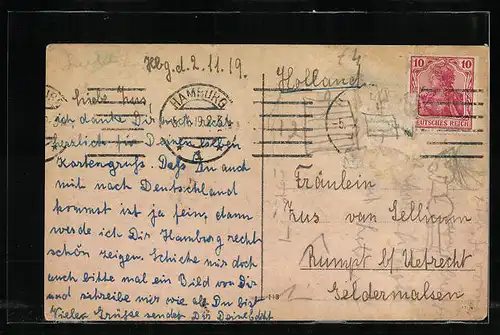 Hbg. d. 2. 11. 19.
Liebe Zus,
ich danke Dir recht
herzlich für Deinen lieben
Kartengruß. Daß Du auch
mit nach Deutschland
kommst ist ja fein, dann
werde ich Dir Hamburg recht
schön zeigen. Schicke mir doch
auch bitte mal ein Bild von Dir
und schreibe mir wie alt Du bist
Viele Grüße sendet Dir Deine
HAMBURG
Holland
10 10
DEUTSCHES REICH
Fräulein
Zus van
Rumpt b/ Uetrecht
Geldermalsen